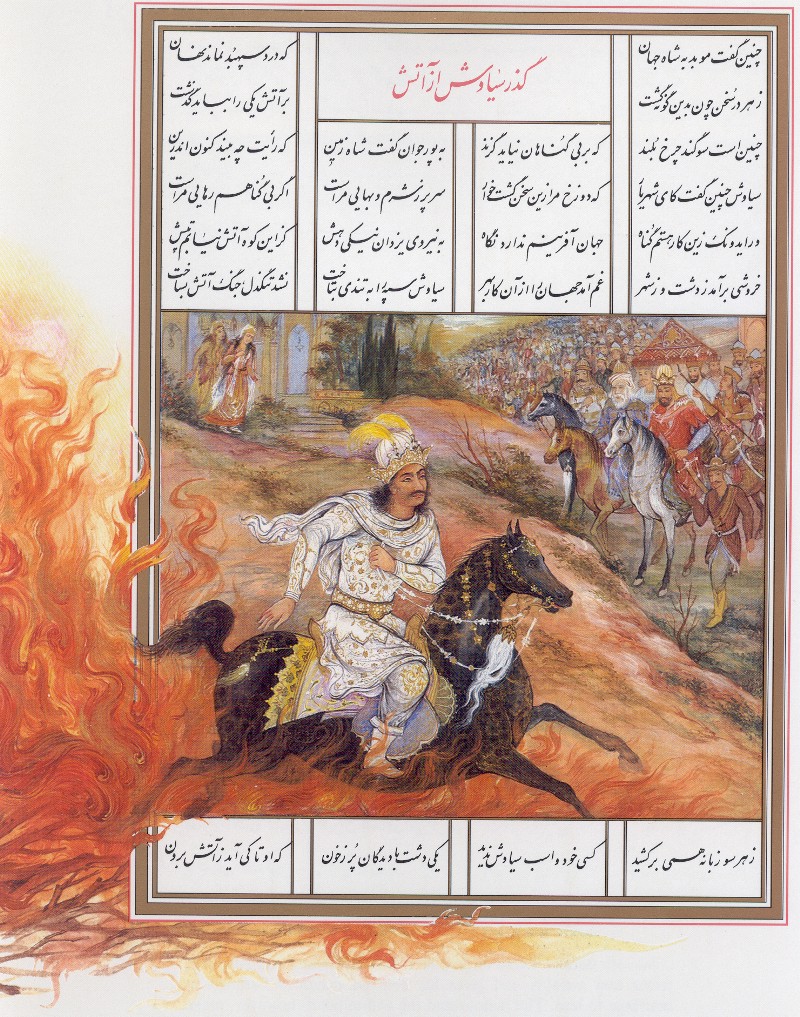 گذر سیاوش از آتش
چنین گفت موبد به شاه جهان که درد سپهبد نماند نهان
ز هر در سخن چون بدین گونه گشت بر آتش یکی را بباید گذشت
چنین است سوگند چرخ بلند که بر بی گناهان نیاید گزند به پور جوان گفت شاه زمین که رأیت چه بیند کنون اندرین
سیاوش چنین گفت کای شهریار که دوزخ مرا زین سخن گشت خوار سر پر ز شرم و بهایی مراست اگر بی گناهم رهایی مراست
ور ایدونک زین کار هستم گناه جهان آفرینم ندارد نگاه به نیروی یزدان نیکی دهش کز این کوه آتش نیابم تپش
خروشی برآمد ز دشت و ز شهر غم آمد جهان را از آن کار بهر سیاوش سیه را به تندی بتاخت نشد تنگدل جنگ آتش بساخت
ز هر سو زبانه همی برکشید کسی خود و اسب سیاوش ندید یکی دشت با دیدگان پُر ز خون که او تا کی آید ز آتش برون